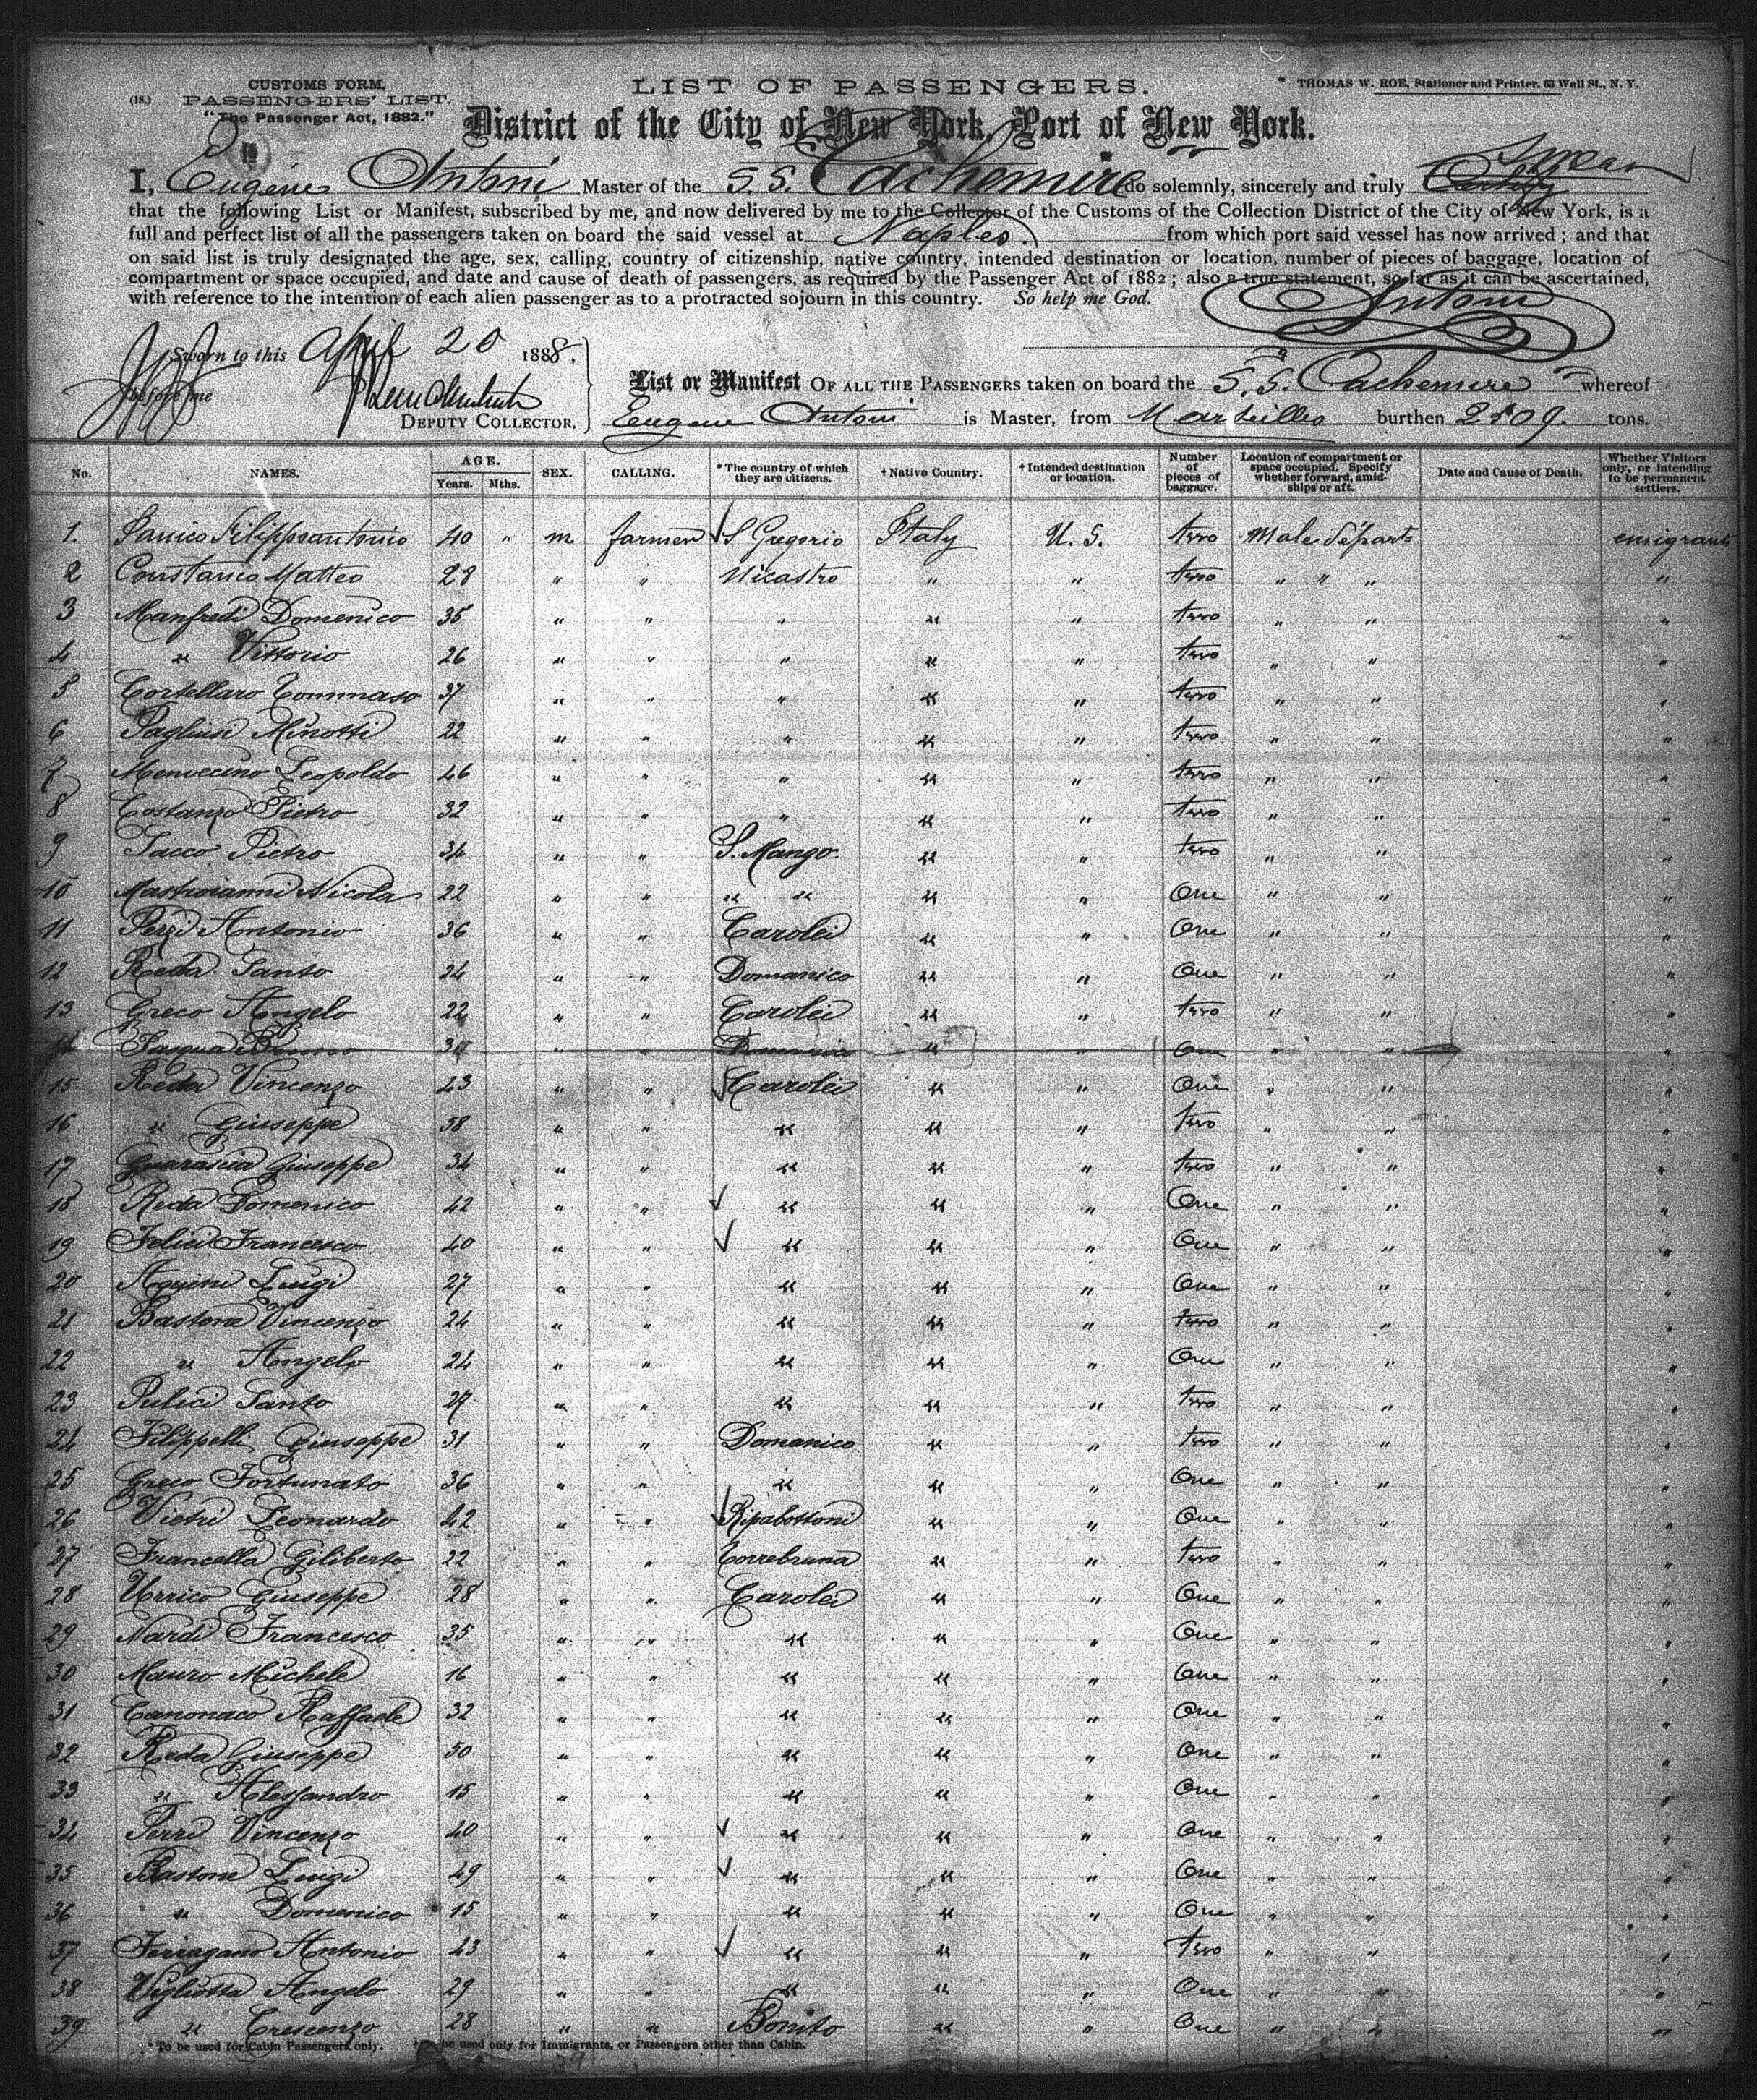 CUSTOMS FORM,
(18.) PASSENGERS' LIST.
"The Passenger Act, 1882."
LIST OF PASSENGERS.
THOMAS W. ROE, Stationer and Printer, 63 Wall St., N. Y.
District of the City of New York, Port of New York.
I, Eugène Antoni Master of the S S. Cachemire do solemnly, sincerely and truly Swear
that the following List or Manifest, subscribed by me, and now delivered by me to the Collector of the Customs of the Collection District of the City of New York, is a
full and perfect list of all the passengers taken on board the said vessel at Naples. from which port said vessel has now arrived; and that
on said list is truly designated the age, sex, calling, country of citizenship, native country, intended destination or location, number of pieces of baggage, location of
compartment or space occupied, and date and cause of death of passengers, as required by the Passenger Act of 1882; also a true statement, so far as it can be ascertained,
with reference to the intention of each alien passenger as to a protracted sojourn in this country. So help me God.
Antoni
Sworn to this April 20 1888.
before me
DEPUTY COLLECTOR.
List or Manifest OF ALL THE PASSENGERS taken on board the S. S. Cachemire whereof
Eugene Antoni is Master, from Marseilles burthen 2509. tons.
No. NAMES. AGE. Years. Mths. SEX. CALLING. * The country of which they are citizens. † Native Country. † Intended destination or location. Number of pieces of baggage. Location of compartment or space occupied. Specify whether forward, amidships or aft. Date and Cause of Death. Whether Visitors only, or intending to be permanent settlers.
1. Filippoantonio 40 " m farmer S Gregorio Italy U. S. two Male Départt emigrant
2 Matteo 28 " " Nicastro " " two " " " "
3 Manfredi Domenico 35 " " " " " two " " "
4 " Vittorio 26 " " " " " two " " "
5 Cortellaro Tommaso 37 " " " " " two " " "
6 Pagliusi Minotti 22 " " " " " two " " "
7 Leopoldo 46 " " " " " two " " "
8 Costanzo Pietro 32 " " " " " two " " "
9 Sacco Pietro 34 " " S. Mango. " " two " " "
10 Mastroianni Nicola 22 " " " " " " One " " "
11 Perri Antonio 36 " " Carolei " " One " " "
12 Reda Santo 24 " " Domanico " " One " " "
13 Greco Angelo 22 " " Carolei " " two " " "
14 Bruno 34 " " Domanico " " One " " "
15 Reda Vincenzo 43 " " Carolei " " One " " "
16 " Giuseppe 58 " " " " " two " " "
17 Guarascia Giuseppe 34 " " " " " two " " "
18 Reda Domenico 42 " " " " " One " " "
19 Felici Francesco 40 " " " " " One " " "
20 Aquini Luigi 27 " " " " " One " " "
21 Bastone Vincenzo 24 " " " " " two " " "
22 " Angelo 24 " " " " " One " " "
23 Pulici Santo 27 " " " " " two " " "
24 Filippelli Giuseppe 31 " " Domanico " " two " " "
25 Greco Fortunato 36 " " " " " One " " "
26 Vietri Leonardo 42 " " Ripabottoni " " One " " "
27 Francella Giliberto 22 " " Torrebruna " " two " " "
28 Urrico Giuseppe 28 " " Carolei " " One " " "
29 Nardi Francesco 35 " " " " " One " " "
30 Mauro Michele 16 " " " " " One " " "
31 Canonaco Raffaele 32 " " " " " One " " "
32 Reda Giuseppe 50 " " " " " One " " "
33 " Alessandro 15 " " " " " One " " "
34 Perri Vincenzo 40 " " " " " One " " "
35 Bastone Luigi 49 " " " " " One " " "
36 " Domenico 15 " " " " " One " " "
37 Ferragano Antonio 43 " " " " " two " " "
38 Vigliotta Angelo 29 " " " " " One " " "
39 " Crescenzo 28 " " Bonito " " One " " "
* To be used for Cabin Passengers only. † To be used only for Immigrants, or Passengers other than Cabin.